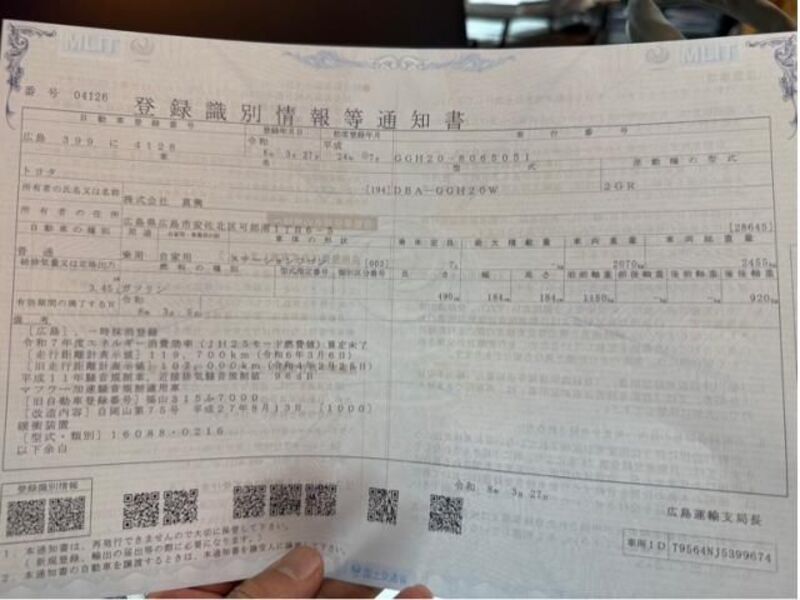 MLIT
MLIT
番号 04126
登録識別情報等通知書
自動車登録番号 登録年月日 初度登録年月 車台番号
広島 399 に 4126 令和 6年 3月 27日 平成 24年 7月 GGH20-8065051
車名 型式 原動機の型式
トヨタ [194] DBA-GGH20W 2GR
所有者の氏名又は名称 株式会社
所有者の住所
[28645]
自動車の種別 用途 自家用・事業用の別 車体の形状 乗車定員 最大積載量 車両重量 車両総重量
普通 乗用 自家用 ステーションワゴン [003] 7人 -kg 2070kg 2455kg
総排気量又は定格出力 燃料の種別 型式指定番号 類別区分番号 長さ 幅 高さ 前前軸重 前後軸重 後前軸重 後後軸重
3.45 ガソリン 490cm 184cm 184cm 1150kg -kg -kg 920kg
有効期間の満了する日 令和
備考
[広島]、一時抹消登録
令和7年度エネルギー消費効率(JH25モード燃費値)算定未了
[走行距離計表示値] 119,700km (令和6年3月6日)
[旧走行距離計表示値] 102,000km (令和4年2月25日)
平成11年騒音規制車、近接排気騒音規制値 96dB
マフラー加速騒音規制適用車
[旧自動車登録番号] 福山315ふ7000
[改造内容] 自岡山第75号 平成27年8月13日 [1000]
緩衝装置
[型式・類別] 16088・0216
以下余白
登録識別情報
令和 6年 3月 27日
広島運輸支局長
1. 本通知書は、再発行できませんので大切に保管して下さい。
(新規登録、輸出の届出等の際に必要になります。)
2. 本通知書の自動車を譲渡するときは、本通知書を譲受人に譲渡して下さい。
車両ID T9564NJ5399674
国土交通省